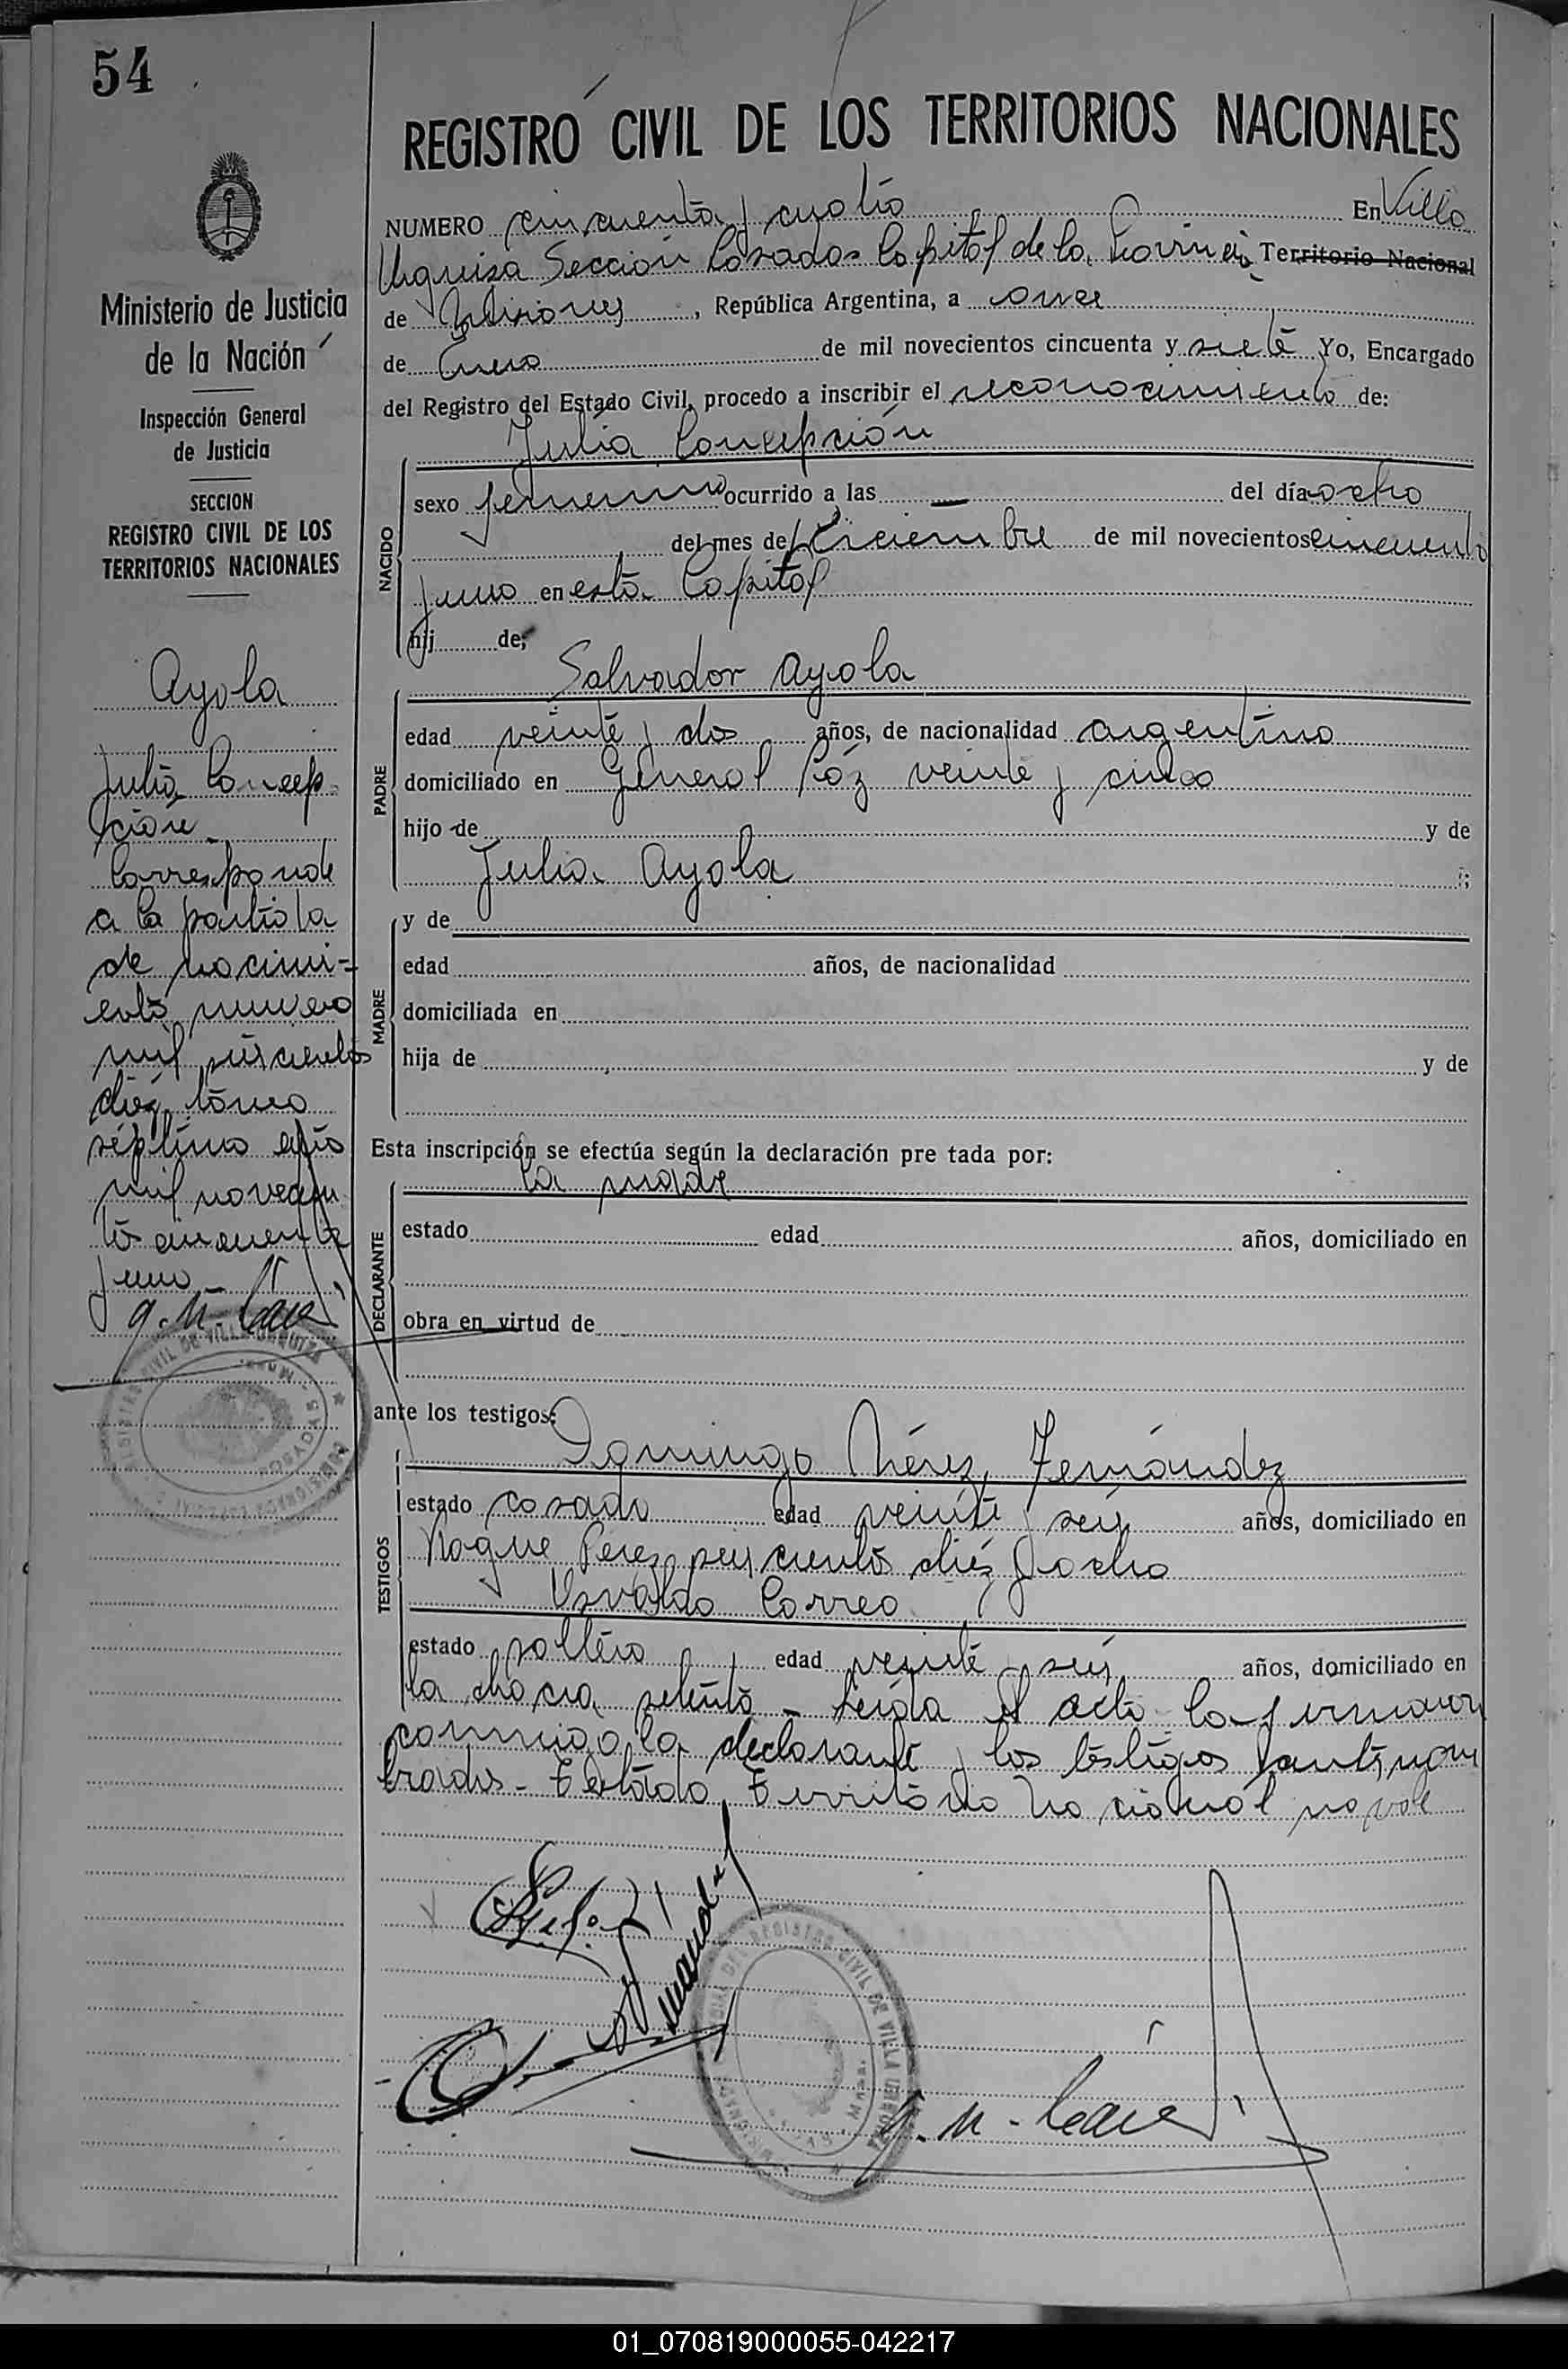 54
REGISTRO CIVIL DE LOS TERRITORIOS NACIONALES
Ministerio de Justicia
de la Nación
Inspección General
de Justicia
SECCION
REGISTRO CIVIL DE LOS
TERRITORIOS NACIONALES
Ayala
Julia Concep-
ción
Corresponde
a la partida
de nacimi-
ento numero
mil seiscientos
diez, tomo
séptimo año
mil novecien
tos cincuenta
y uno
NUMERO cincuenta y cuatro En Villa
Urquiza Sección Posadas Capital de la Provincia Territorio Nacional
de Misiones, República Argentina, a once
de Enero de mil novecientos cincuenta y siete Yo, Encargado
del Registro del Estado Civil, procedo a inscribir el reconocimiento de:
Julia Concepción
NACIDO
sexo femenino ocurrido a las — del día ocho
del mes de Diciembre de mil novecientos cincuenta
y uno en esta Capital
hij de;
Salvador Ayala
PADRE
edad veinte y dos años, de nacionalidad argentino
domiciliado en General Páz veinte y cinco
hijo de y de
Julia Ayala
MADRE
y de
edad años, de nacionalidad
domiciliada en
hija de y de
Esta inscripción se efectúa según la declaración pre tada por:
la madre
DECLARANTE
estado edad años, domiciliado en
obra en virtud de
ante los testigos:
Domingo Nérez Fernández
TESTIGOS
estado casado edad veinte y seis años, domiciliado en
Roque Perez seis cientos diez y ocho
Osvaldo Correa
estado soltero edad veinte y seis años, domiciliado en
la chacra setenta - Leida el acta la firmaron
conmigo la declarante y los testigos antenom
brados - Testado Territorio Nacional no vale
01_070819000055-042217